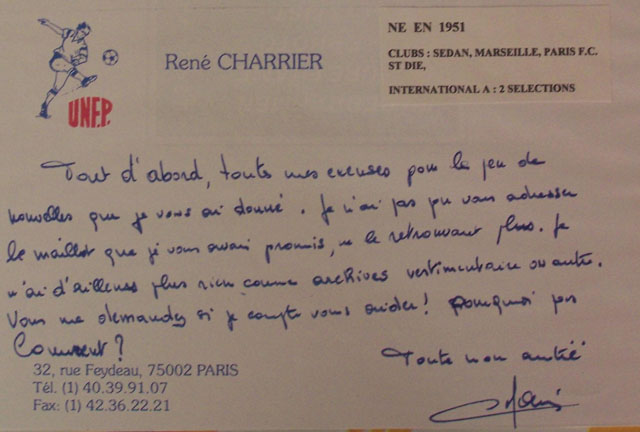 NE EN 1951
CLUBS : SEDAN, MARSEILLE, PARIS F.C.
ST DIE,
INTERNATIONAL A : 2 SELECTIONS
René CHARRIER
UNFP.
Tout d'abord, toutes mes excuses pour le peu de
nouvelles que je vous ai donné. Je n'ai pas pu vous adresser
le maillot que je vous avais promis, ne le retrouvant plus. Je
n'ai d'ailleurs plus rien comme archives vestimentaire ou autre.
Vous me demandez si je compte vous aider ! pourquoi pas
Comment ?
Toute mon amitié
32, rue Feydeau, 75002 PARIS
Tél. (1) 40.39.91.07
Fax: (1) 42.36.22.21